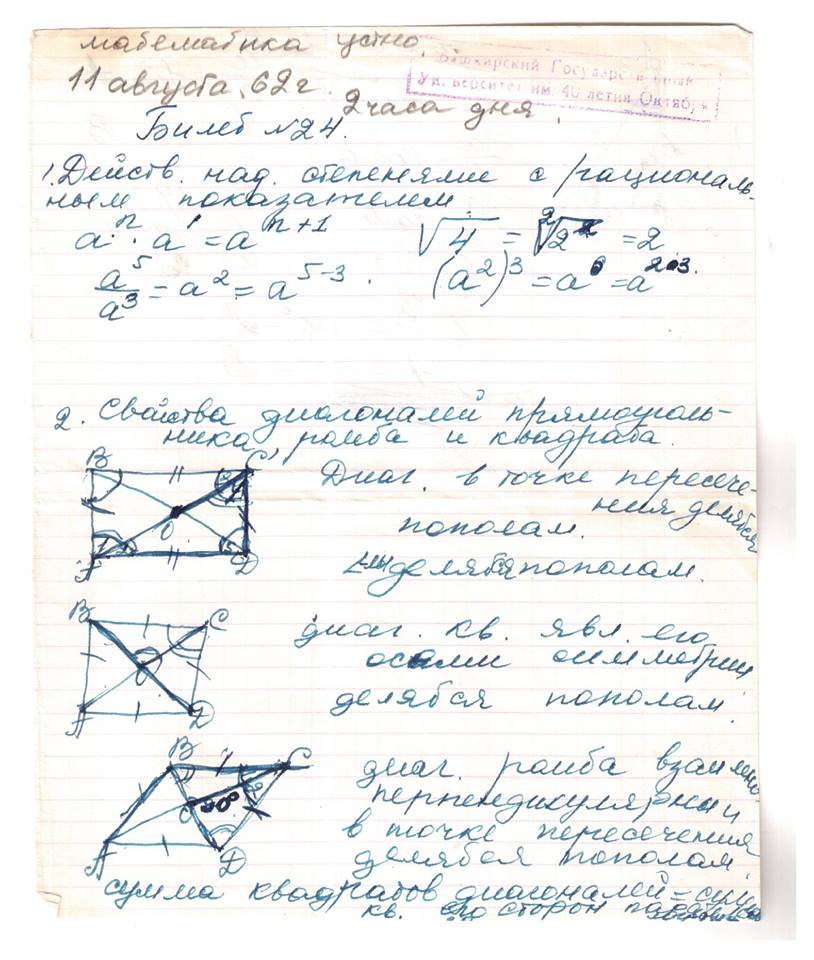 математика устно.
Башкирский Государственный
Университет им. 40 летия Октября
11 августа, 62 г.
2 часа дня.
Билет №24.
1. Действ. над. степенями с рациональ-
ным показателем
aⁿ · a¹ = aⁿ⁺¹ √4 = ²√2² = 2
a⁵/a³ = a² = a⁵⁻³. (a²)³ = a⁶ = a²·³.
2. Свойства диагоналей прямоуголь-
ника, ромба и квадрата.
B C
Диаг. в точке пересече-
ния делятся
O
пополам.
A D
∠лы делятся пополам.
B C
диаг. кв. явл. его
O
осями симметрии
A D
делятся пополам.
B C
диаг. ромба взаимно
O 90°
перпендикулярны и
в точке пересечения
A D
делятся пополам.
сумма квадратов диагоналей = сумма
кв. его сторон